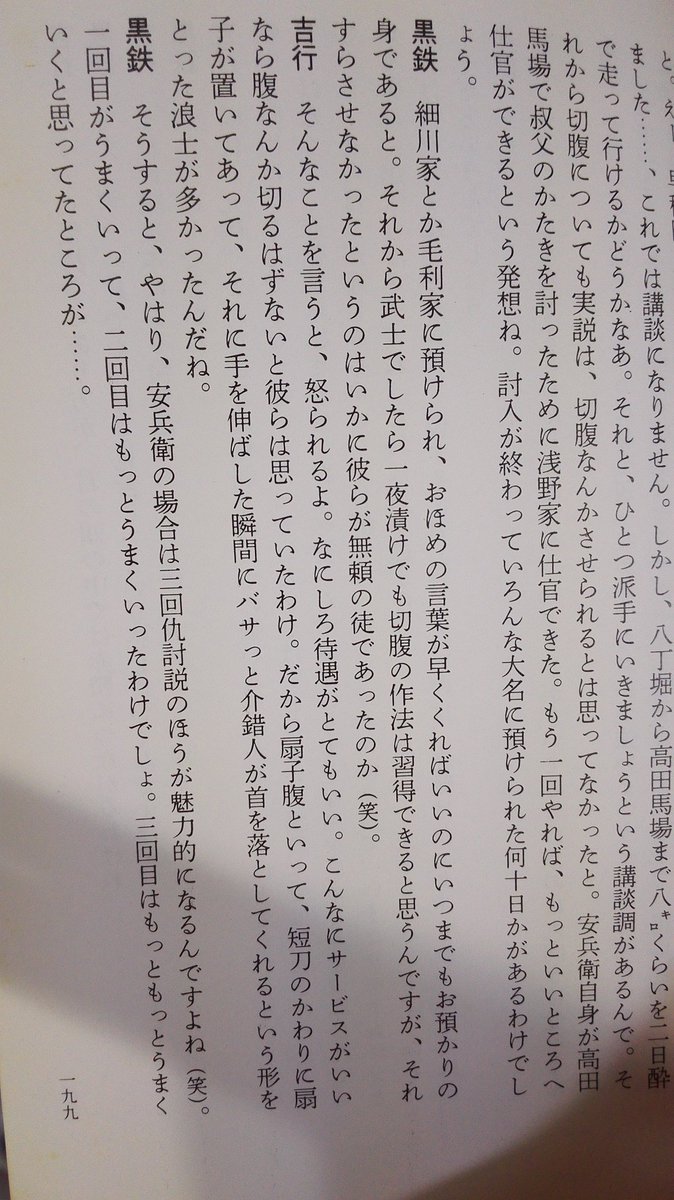 ました……、これでは講談になりません。しかし、八丁堀から高田馬場まで八㌔くらいを二日酔
で走って行けるかどうかなあ。それと、ひとつ派手にいきましょうという講談調があるんで。そ
れから切腹についても実説は、切腹なんかさせられるとは思ってなかったと。安兵衛自身が高田
馬場で叔父のかたきを討ったために浅野家に仕官できた。もう一回やれば、もっといいところへ
仕官ができるという発想ね。討入が終わっていろんな大名に預けられた何十日かがあるわけでし
ょう。
黒鉄　細川家とか毛利家に預けられ、おほめの言葉が早くくればいいのにいつまでもお預かりの
身であると。それから武士でしたら一夜漬けでも切腹の作法は習得できると思うんですが、それ
すらさせなかったというのはいかに彼らが無頼の徒であったのか（笑）。
吉行　そんなことを言うと、怒られるよ。なにしろ待遇がとてもいい。こんなにサービスがいい
なら腹なんか切るはずないと彼らは思っていたわけ。だから扇子腹といって、短刀のかわりに扇
子が置いてあって、それに手を伸ばした瞬間にバサっと介錯人が首を落としてくれるという形を
とった浪士が多かったんだね。
黒鉄　そうすると、やはり、安兵衛の場合は三回仇討説のほうが魅力的になるんですよね（笑）。
一回目がうまくいって、二回目はもっとうまくいったわけでしょ。三回目はもっともっとうまく
いくと思ってたところが……。
一九九